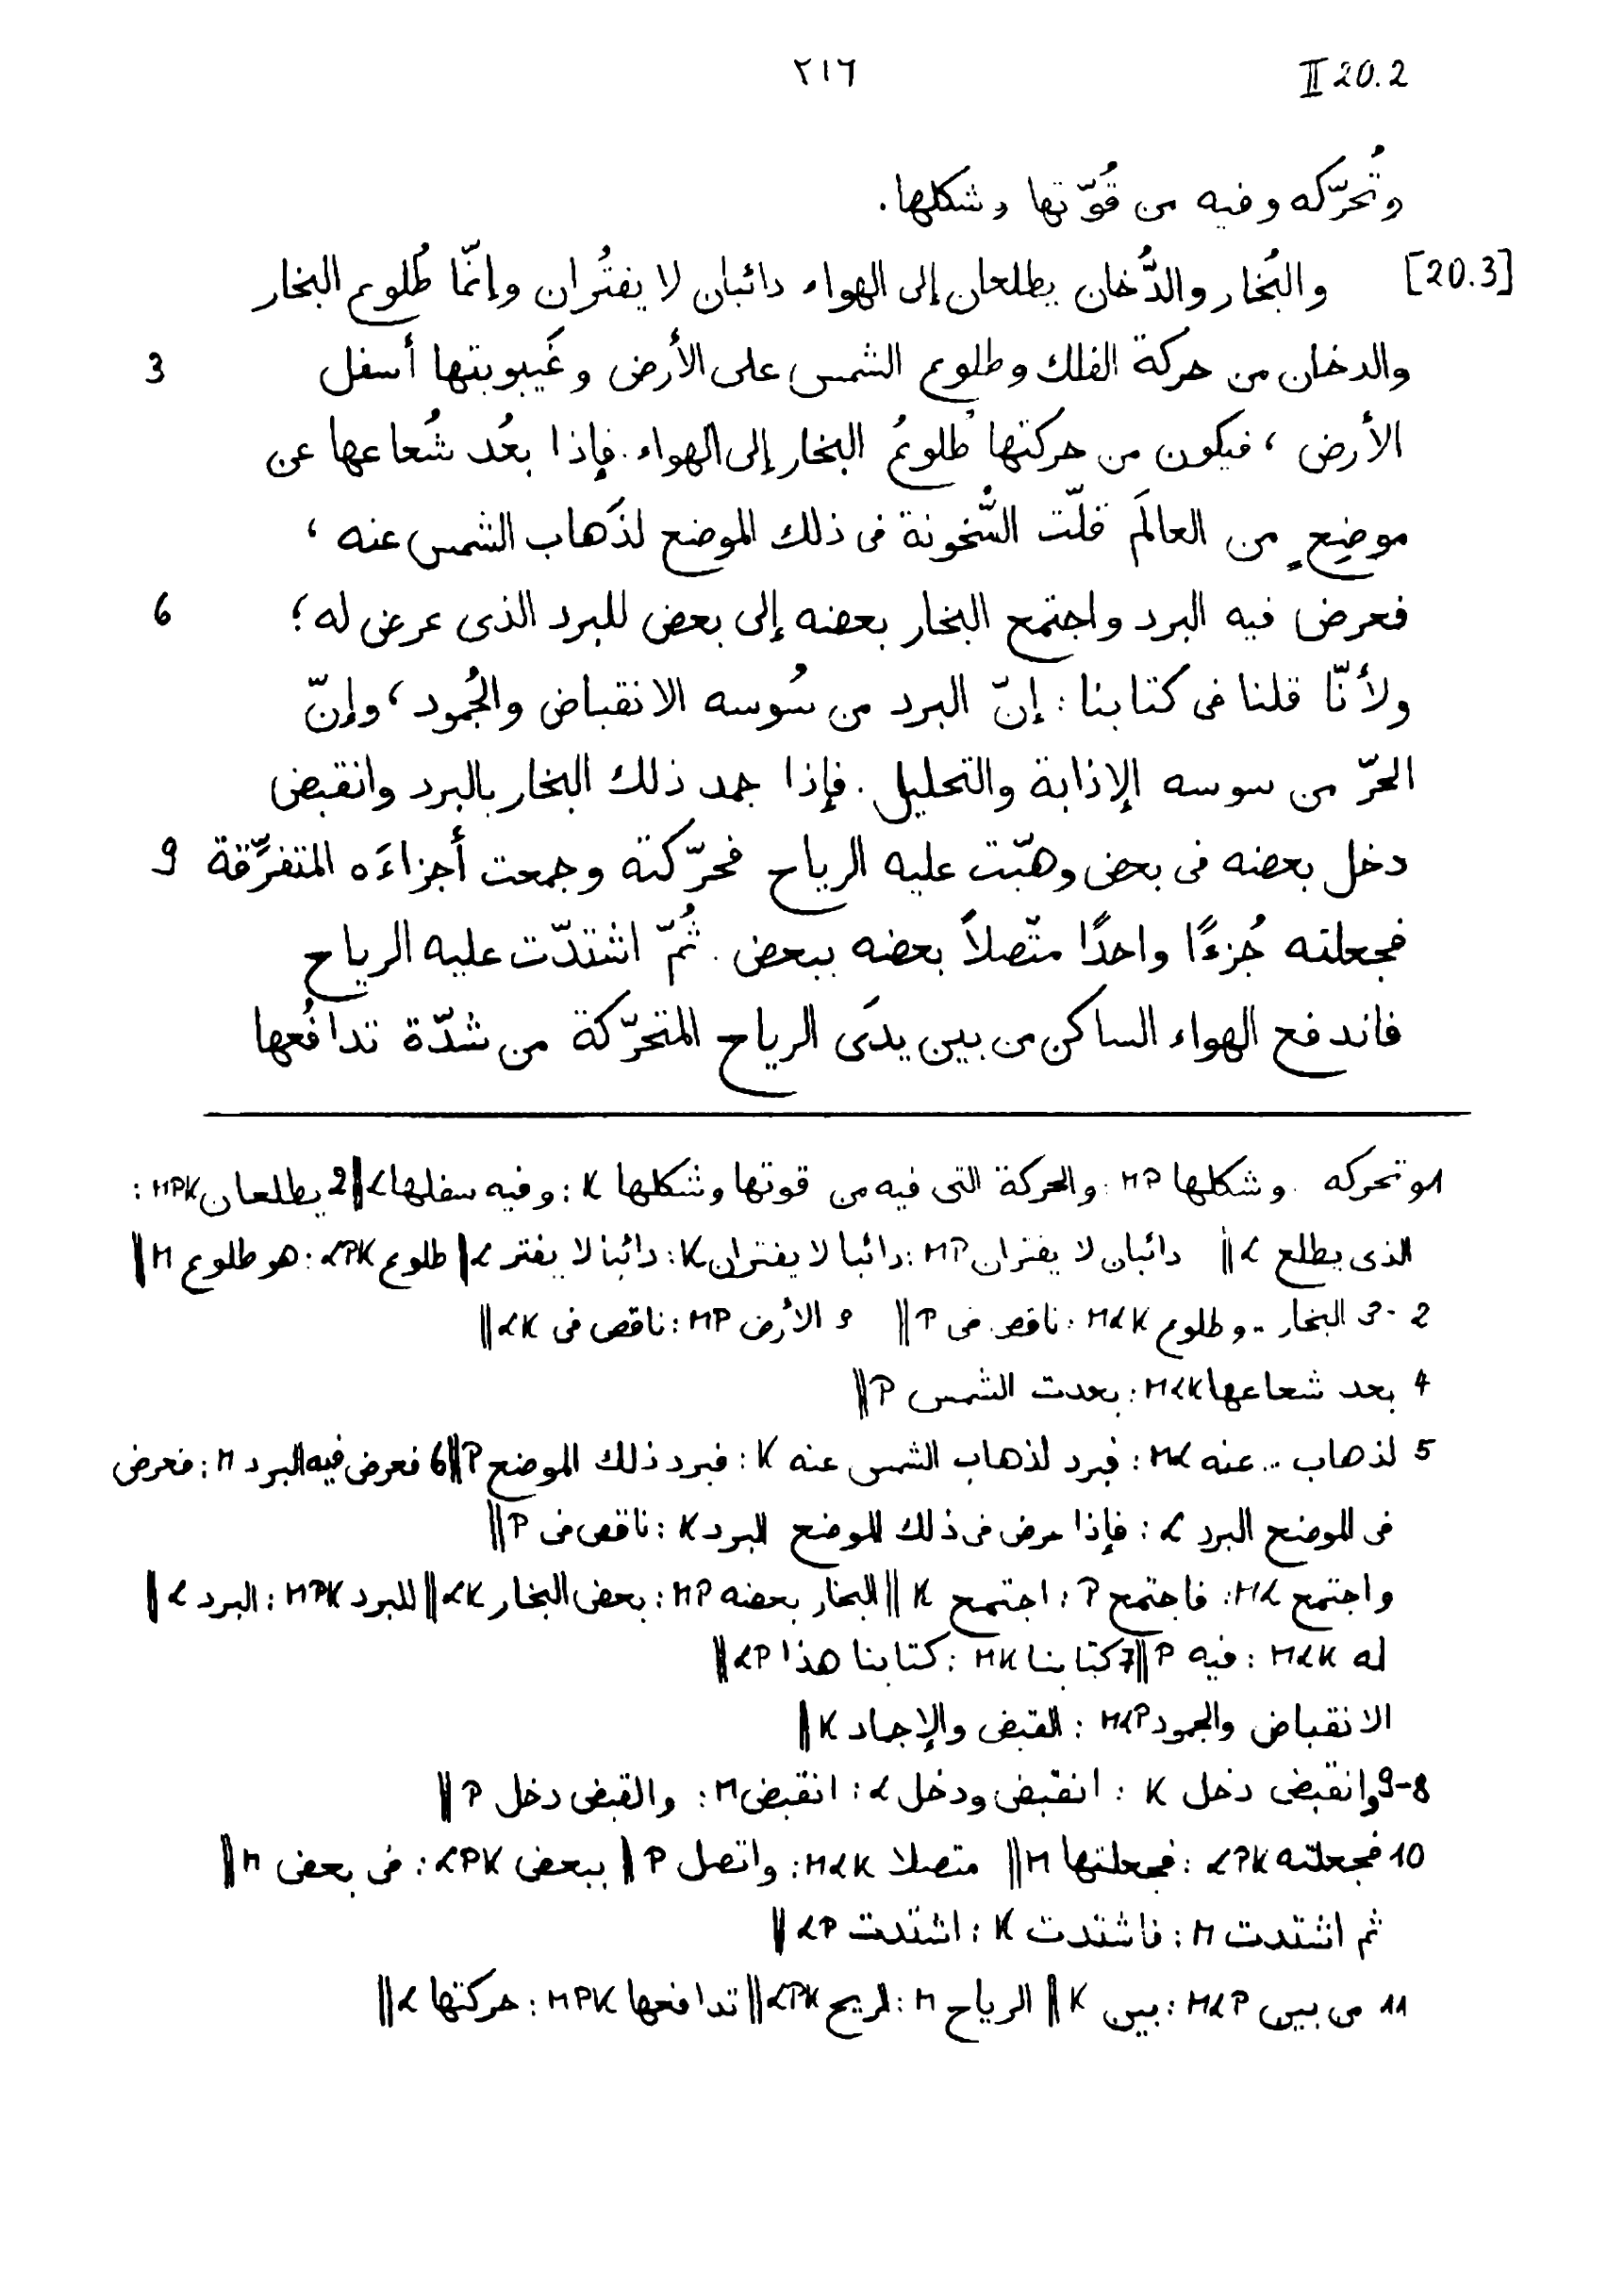 ٢١٦ II 20.2
وتُحرّكه وفيه من قُوّتها وشكلها.
[20.3] والبُخار والدُّخان يطلعان إلى الهواء دائبان لا يفتُران وإنّما طُلوع البخار
والدخان من حركة الفلك وطلوع الشمس على الأرض وغَيبوبتها أسفل 3
الأرض ، فيكون من حركتها طُلوعُ البخار إلى الهواء. فإذا بعُد شُعاعها عن
موضِعٍ من العالَم قلّت السُّخونة فى ذلك الموضع لذَهاب الشمس عنه ،
فعرض فيه البرد واجتمع البخار بعضه إلى بعض للبرد الذى عرض له ؛ 6
ولأنّا قلنا فى كتابنا : إنّ البرد من سُوسه الانقباض والجُمود ، وإنّ
الحرّ من سوسه الإذابة والتحليل . فإذا جمد ذلك البخار بالبرد وانقبض
دخل بعضه فى بعض وهبّت عليه الرياح فحرّكته وجمعت أجزاءَه المتفرِّقة 9
فجعلته جُزءًا واحدًا متّصلاً بعضه ببعض . ثُمّ اشتدّت عليه الرياح
فاندفع الهواء الساكن من بين يدَى الرياح المتحرّكة من شدّة تدافُعها
1 وتحركه .. وشكلها MP : والحركة التى فيه من قوتها وشكلها K : وفيه سفلها L || 2 يطلعان MPK :
الذى يطلع L || دائبان لا يفتران MP : دائبا لا يفتران K : دائبا لا يفتر L || طلوع LPK : هو طلوع M ||
2-3 البخار .. وطلوع MLK : ناقص فى P || 3 الأرض MP : ناقص فى LK ||
4 بعد شعاعها MLK : بعدت الشمس P ||
5 لذهاب .. عنه ML : فبرد لذهاب الشمس عنه K : فبرد ذلك الموضع P || 6 فعرض فيه البرد M : فعرض
فى الموضع البرد L : فإذا عرض فى ذلك الموضع البرد K : ناقص فى P ||
واجتمع ML : فاجتمع P : اجتمع K || البخار بعضه MP : بعض البخار LK || للبرد MPK : البرد L ||
له MLK : فيه P || 7 كتابنا MK : كتابنا هذا LP ||
الانقباض والجمود MLP : القبض والإجماد K ||
8-9 وانقبض دخل K : انقبض ودخل L : انقبض M : والقبض دخل P ||
10 فجعلته LPK : فجعلتها M || متصلا MLK : واتصل P || ببعض LPK : فى بعض M ||
ثم اشتدت M : فاشتدت K : اشتدت LP ||
11 من بين MLP : بين K || الرياح M : الريح LPK || تدافعها MPK : حركتها L ||